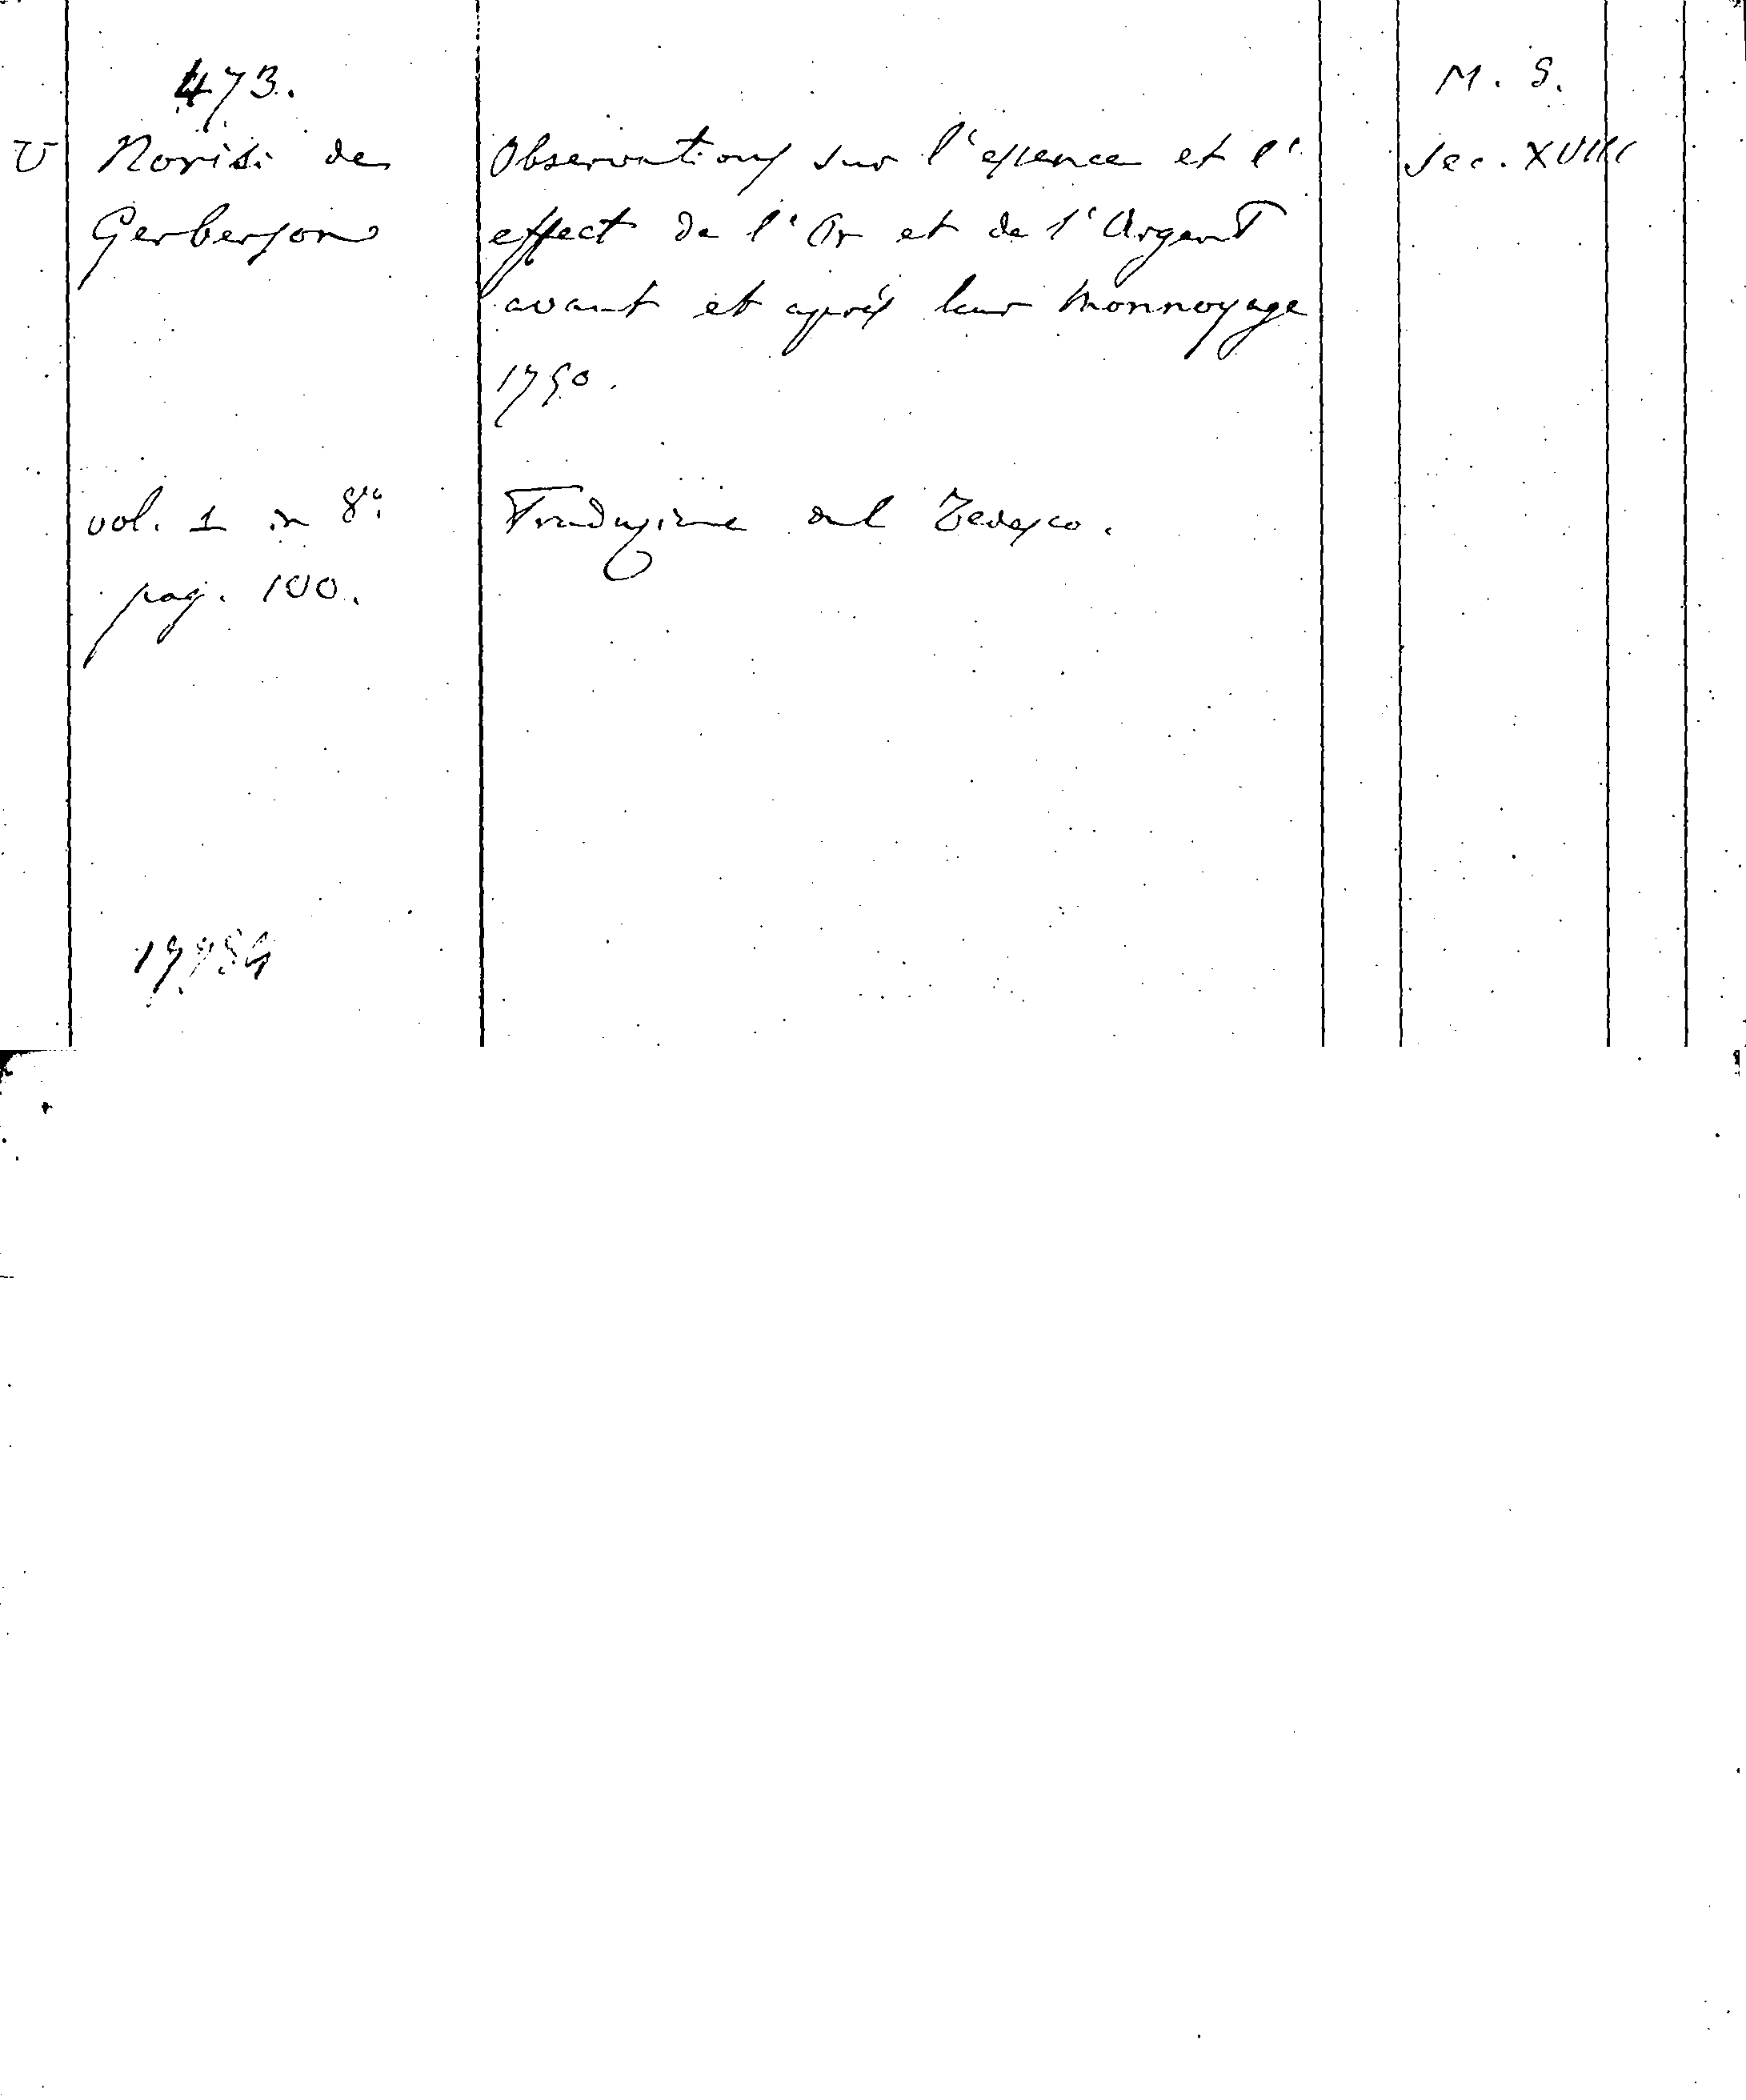 473.
M. S.
V Norisi de
Observations sur l'essence et l'
Sec. XVIII
Gerberson
effect de l'Or et de l'Argent
avant et après leur Monnoyage
1750.
vol. 1 in 8°:
Traduzione dal Tedesco.
pag. 100.